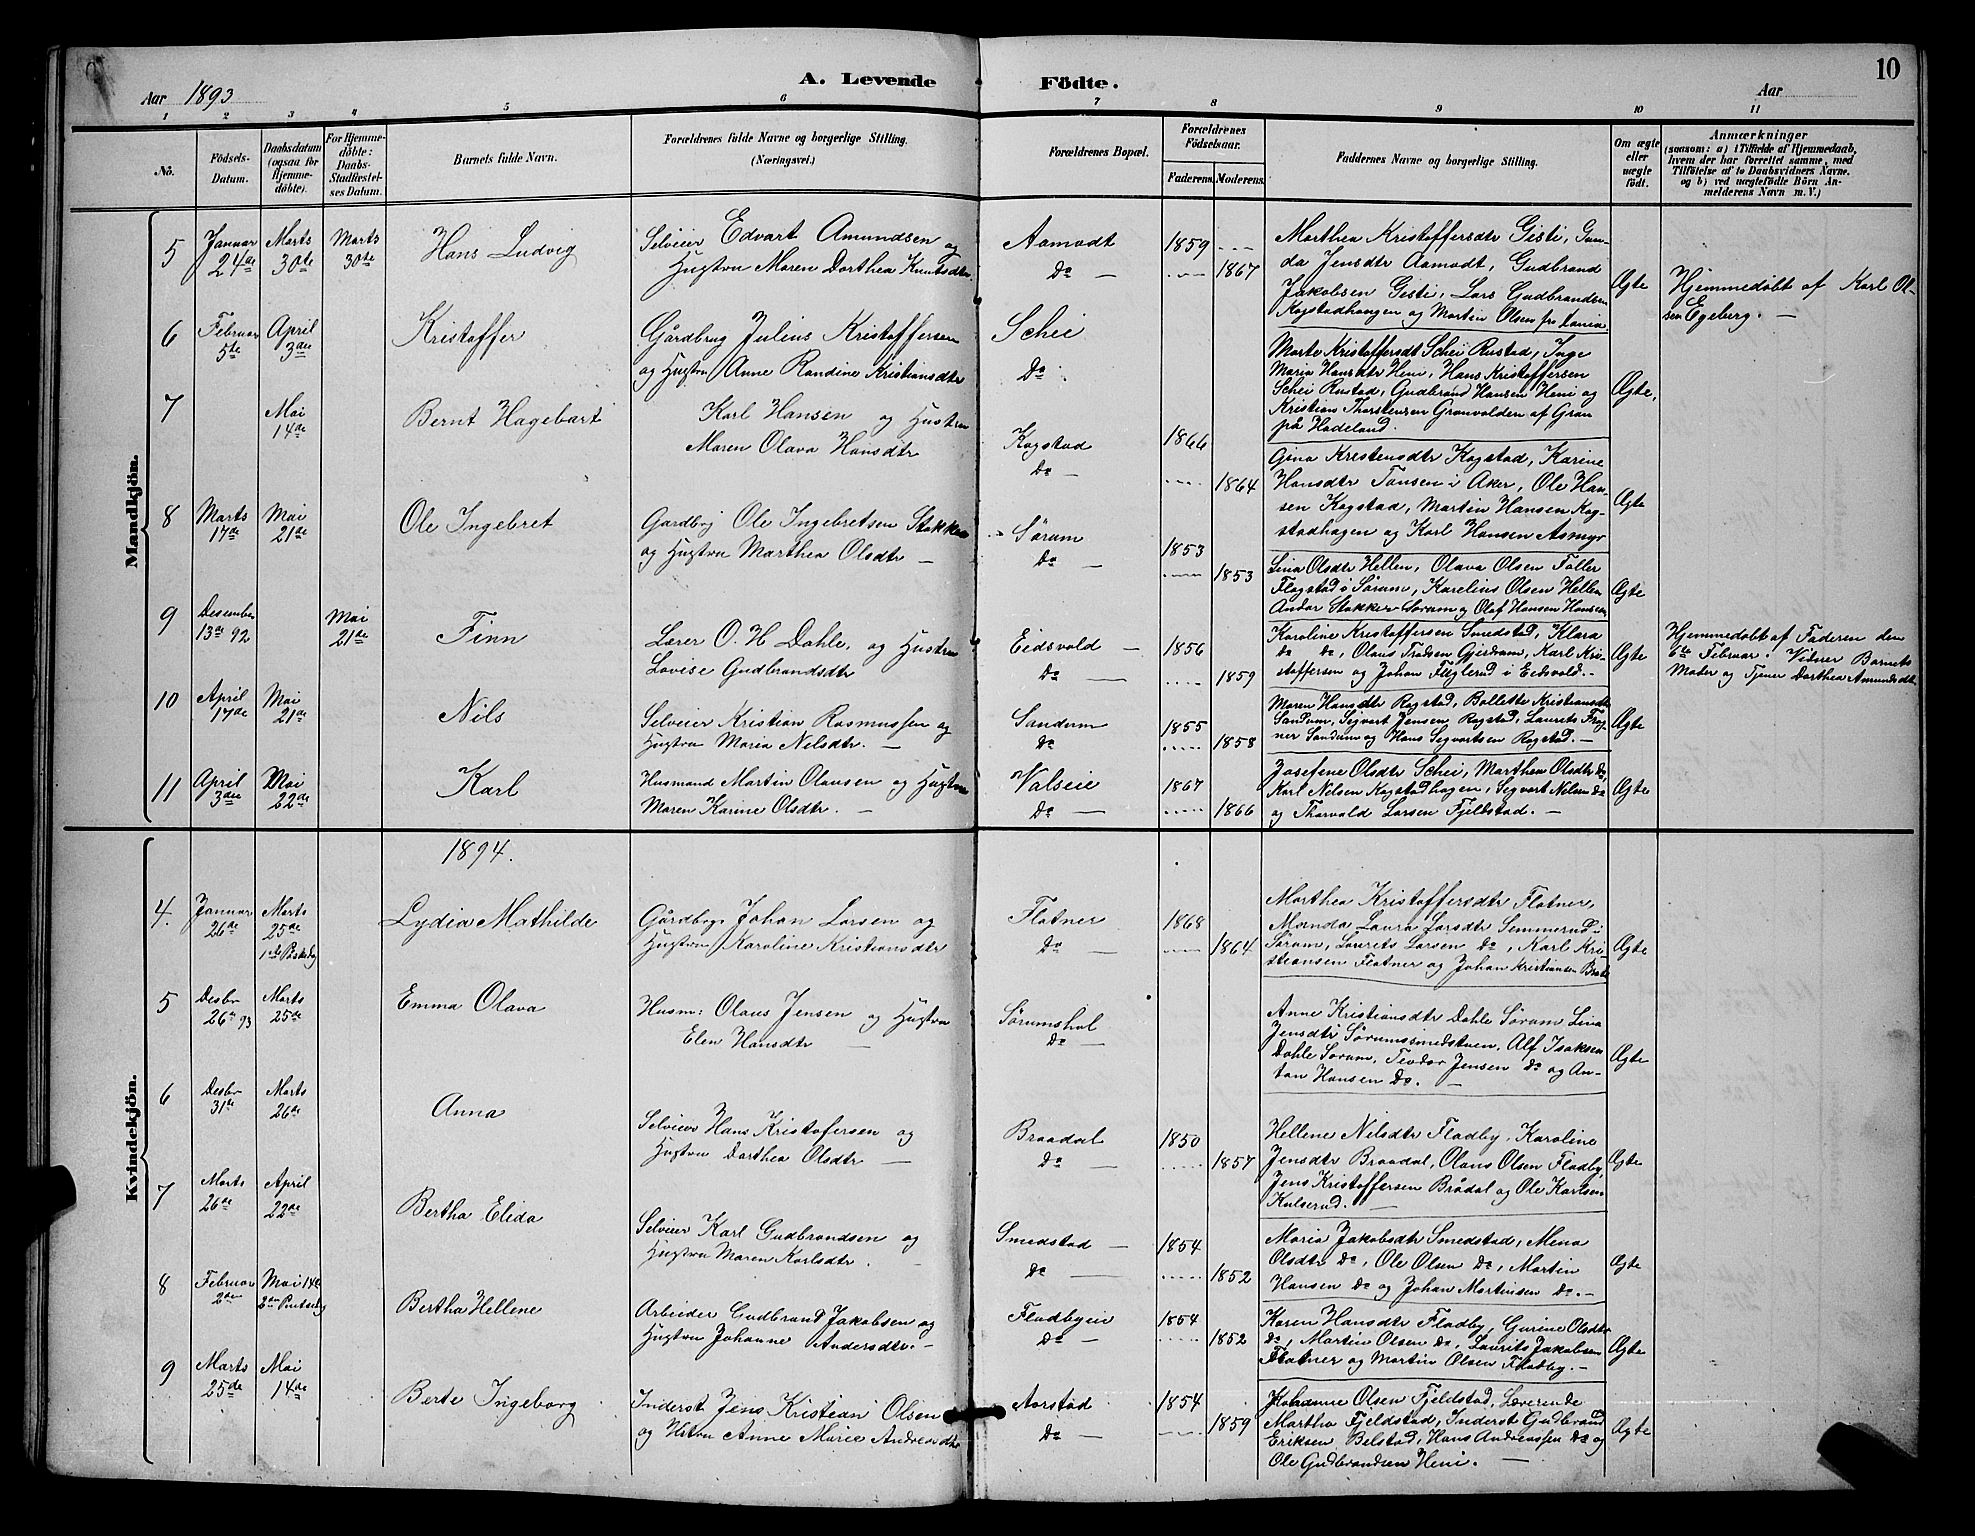 10
A. Levende Födte.
Aar 1893
Aar
1 2 3 4 5 6 7 8 9 10 11
No.
Födsels-
Datum.
Daabsdatum
(ogsaa for
Hjemme-
döbte).
For Hjemme-
döbte:
Daabs-
Stadfæstel-
ses Datum.
Barnets fulde Navn.
Forældrenes fulde Navne og borgerlige Stilling.
(Næringsvei.)
Forældrenes Bopæl.
Forældrenes
Födselsaar.
Faderens. Moderens.
Faddernes Navne og borgerlige Stilling.
Om ægte
eller
uægte
födt.
Anmærkninger
(saasom: a) i Tilfælde af Hjemmedaab,
hvem der har forrettet samme, med
Tilföielse af to Daabsvidners Navne.
og b) ved uægtefödte Börn An-
melderens Navn m. V.)
Mandkjön.
5
Januar
24de
Marts
30te
Marts
30te
Hans Ludvig
Selveier Edvart Amundsen og
Hustru Maren Dorthea Knutsdtr
Aamodt
Do —
1859
1867
Marthea Kristoffersdtr Gisti, Gun-
da Jensdtr Aamodt, Gudbrand
Jakobsen Gisti, Lars Gudbrandsen
Kogstadhangen og Martin Olsen fra
Ægte
Hjemmedøbt af Karl Ol-
sen Egeberg. —
6
Februar
5te
April
3die
Kristoffer
Gårdbrug Julius Kristoffersen
og Hustru Anne Randine Kristiansdtr
Schei
Do
Marte Kristoffersdt Schei Rustad, Inge
Maria Hansdtr Heni, Hans Kristoffersen
Schei Rustad, Gudbrand Hansen Heni og
Kristian Thorstensen Granvolden af Gran
på Hadeland.
Ægte,
7
Mai
14de
Bernt Hagebart
Karl Hansen og Hustru
Maren Olava Hansdtr
Kogstad
Do —
1866
1864
Gina Kristensdtr Kogstad, Karine
Hansdtr Tansen i Aker, Ole Han-
sen Kogstad, Martin Hansen Kog-
stadhagen og Karl Hansen Asmyr
Ægte
8
Marts
17de
Mai
21de
Ole Ingebret
Gardbrg Ole Ingebretsen Stakker
og Hustru Marthea Olsdtr —
Sørum
Do —
1853
1853
Lina Olsdtr Hellen, Olava Olsen Faller
Flagstad i Sørum, Karelius Olsen Hellen
Andor Stakker Sørum og Olaf Hansen Hansen
Ægte
9
Desember
13de 92
Mai
21de
Finn
Lærer O. H. Dahle, og Hustru
Lovise Gudbrandsdtr
Eidsvold —
Do —
1856
1859
Karoline Kristoffersen Smedstad, Klara
Do Do, Olaus Tradsen Gjerdrum, Karl Kri-
stoffersen og Johan Fleglerud i Eidsvold. —
Ægte
Hjemmedøbt af Faderen den
6te Februar. Vidner Barnets
Moder og Tjener Dorthea Amundsdtr
10
April
17de
Mai
21de
Nils
Selveier Kristian Rasmussen og
Hustru Maria Nilsdtr. —
Sandum
Do
1855
1858
Maren Hansdtr Rogstad, Bollette Kristiansdtr
Sandum, Segvart Jensen Rogstad, Laurits Frog-
ner Sandum og Hans Segvartsen Rogstad. —
Ægte
11
April
3die
Mai
22de
Karl
Husmand Martin Olausen og Hustru
Maren Karine Olsdtr. —
Valseie
Do —
1867
1866
Josefine Olsdtr Schei, Marthea Olsdtr Do,
Karl Nelsen Kogstadhagen, Segvart Nelsen Do
og Thorvald Larsen Fjeldstad. —
Ægte
Kvindekjön.
1894.
4.
Januar
26de
Marts
25de
1ste Påskedg
Lydia Mathilde
Gårdbrgr Johan Larsen og
Hustru Karoline Kristiansdtr
Flatner
Do —
1868
1864
Marthea Kristoffersdtr Flatner,
Manda Laura Larsdtr Semmerud i
Sørum, Laurets Larsen Do, Karl Kri-
stiansen Flatner og Johan Kristiansen
Ægte
5
Desbr
26de 93
Marts
25de
Emma Olava
Husm: Olaus Jensen og Hustru
Elen Hansdtr —
Sørumshol
Do —
Anne Kristiansdtr Dahle Sørum Lina
Jensdtr Sørumssmedstuen, Alf Isaksen
Dahle Sørum, Teodor Jensen Do og An-
ton Hansen Do. —
Ægte
6
Desbr
31te
Marts
26de
Anna
Selveier Hans Kristofersen og
Hustru Dorthea Olsdtr —
Braadal
Do —
1850
1857
Hellene Nilsdtr Fladby, Karoline
Jensdtr Braadal, Olaus Olsen Fladby,
Jens Kristoffersen Brådal og Ole Karlsen
Kulserud. —
Ægte
7
Marts
26de
April
22de
Bertha Elida
Selveier Karl Gudbrandsen og
Hustru Maren Karlsdtr. —
Smedstad —
Do —
1854
1852
Maria Jakobsdtr Smedstad, Mena
Olsdtr Do, Ole Olsen Do, Martin
Hansen Do og Johan Martinsen Do. —
Ægte
8
Februar
2den
Mai 14de
2den Pintsedg
Bertha Hellene
Arbeider Gudbrand Jakobsen og
Hustru Johanne Andersdtr. —
Fladbyeie
Do —
1854
1852
Karen Hansdtr Fladby, Gurine Olsdtr
Do, Martin Olsen Do, Laurits Jakobsen
Flatner og Martin Olsen Fladby. —
Ægte
9
Marts
25de
Mai
14de
Berte Ingeborg
Inderst Jens Kristian Olsen
og Hstru Anne Marie Andreasdtr
Aarstad
Do —
1854
1859
Johanne Olsen Fjeldstad, Lærerinde
Martha Fjeldstad, Inderst Gudbrand
Eriksen Belstad, Hans Andreassen Do og
Ole Gudbrandsen Heni. —
Ægte